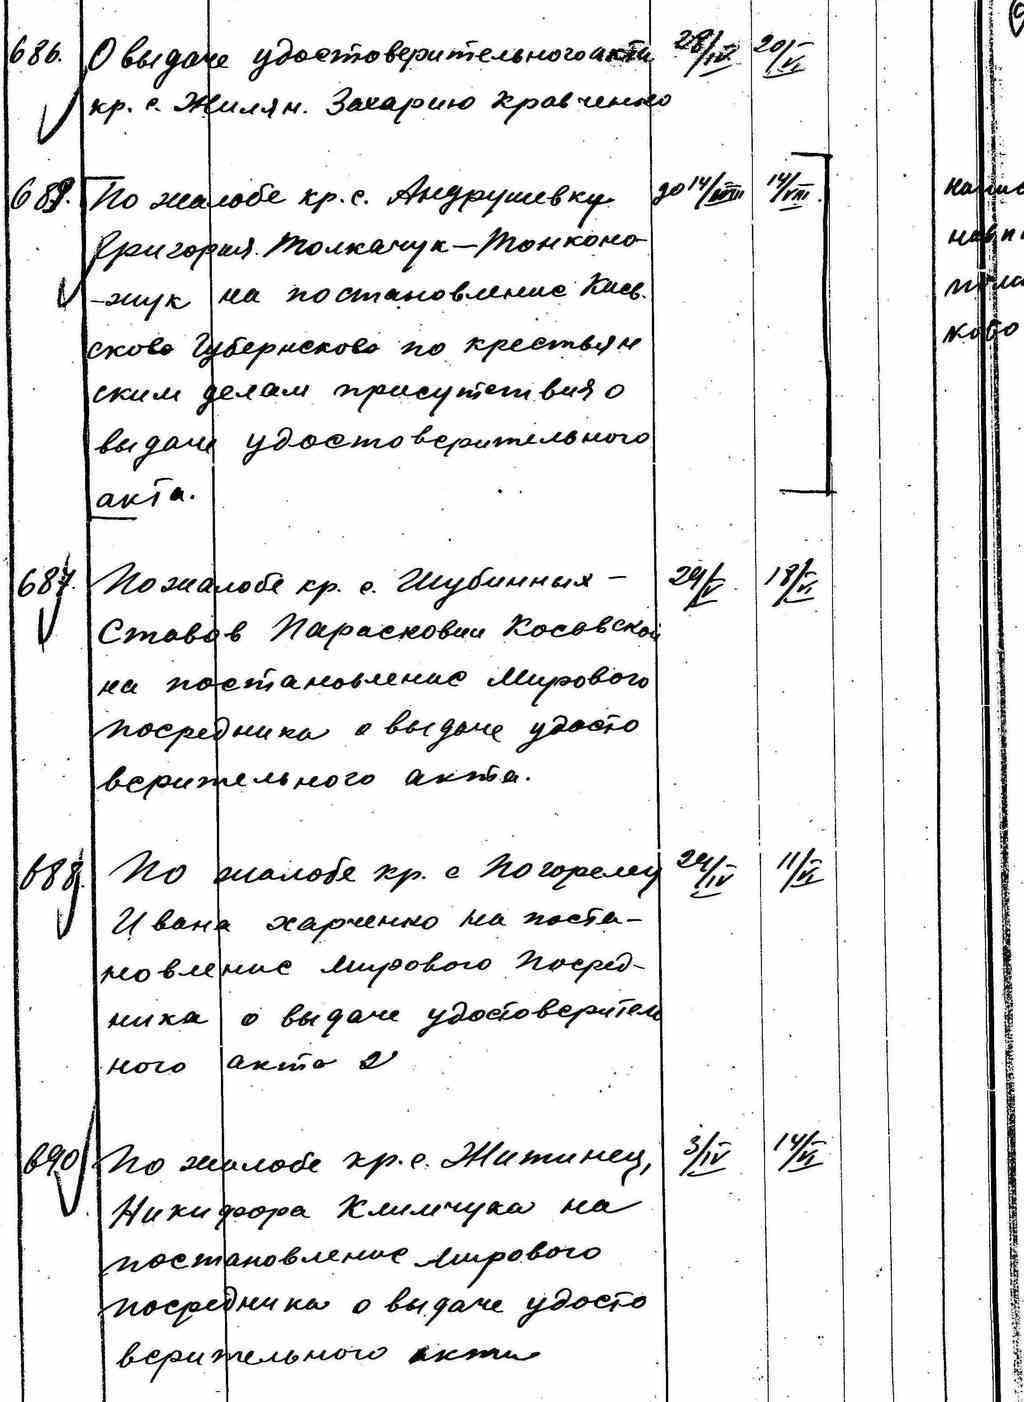 686. О выдаче удостоверительного акта 28/IV 20/VI
кр. с. Жилян. Захарию Кравченко
689. По жалобе кр. с. Андрушевку до 14/VIII 14/VIII
Григория Толкачук-Тонконо-
-жук на постановление Киев.
ского Губернского по крестьян
ским делам присутствия о
выдаче удостоверительного
акта.
687. По жалобе кр. с. Шубинных- 29/V 18/VI
Ставов Парасковии Косовской
на постановление Мирового
посредника о выдаче удосто
верительного акта.
688. По жалобе кр. с Погорелец 24/IV 11/VI
Ивана Харченко на поста-
новление Мирового Посред-
ника о выдаче удостоверител
ного акта 2
690 По жалобе кр. с. Житинец, 3/IV 14/VI
Никифора Климчука на
постановление мирового
посредника о выдаче удосто
верительного акта